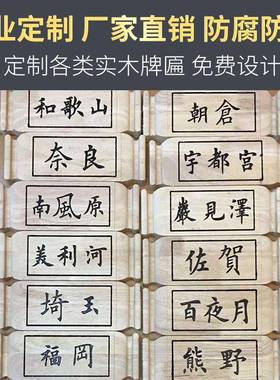 业定制 厂家直销 防腐防
定制各类实木牌匾 免费设计
和歌山
朝倉
奈良
宇都宮
南風原
巖見澤
美利河
佐賀
埼玉
百夜月
福岡
熊野